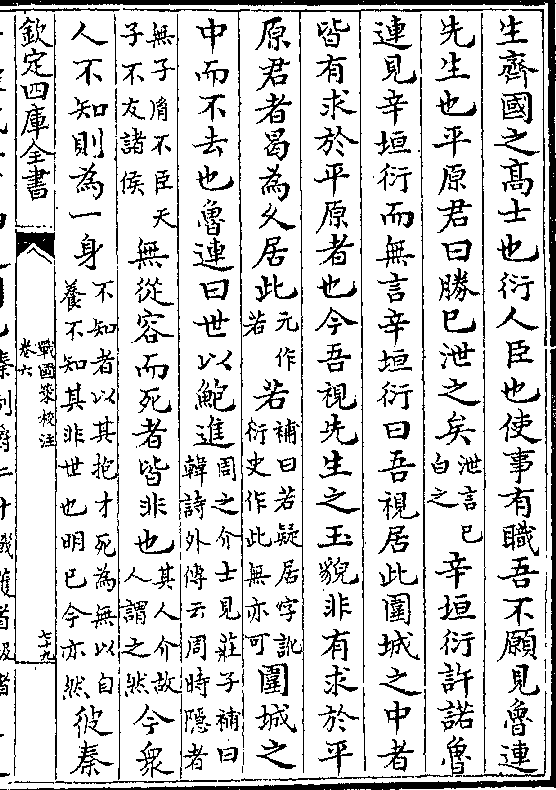 生齊國之髙士也衍人臣也使事有職吾不願見魯連
先生也平原君曰勝已泄之矣泄言已白之辛垣衍許諾魯
連見辛垣衍而無言辛垣衍曰吾視居此圍城之中者
皆有求於平原者也今吾視先生之玉貌非有求於平
原君者曷為久居此元作若若補曰若疑居字訛衍史作此無亦可圍城之
中而不去也魯連曰世以鮑進周之介士見莊子補曰韓詩外傳云周時隱者
無子胤不臣天子不友諸侯無從容而死者皆非也其人介故人謂之然今衆
人不知則為一身不知者以其抱才死為無以自養不知其非世也明已今亦然彼秦
欽定四庫全書
戰國策校注
卷六
七十九